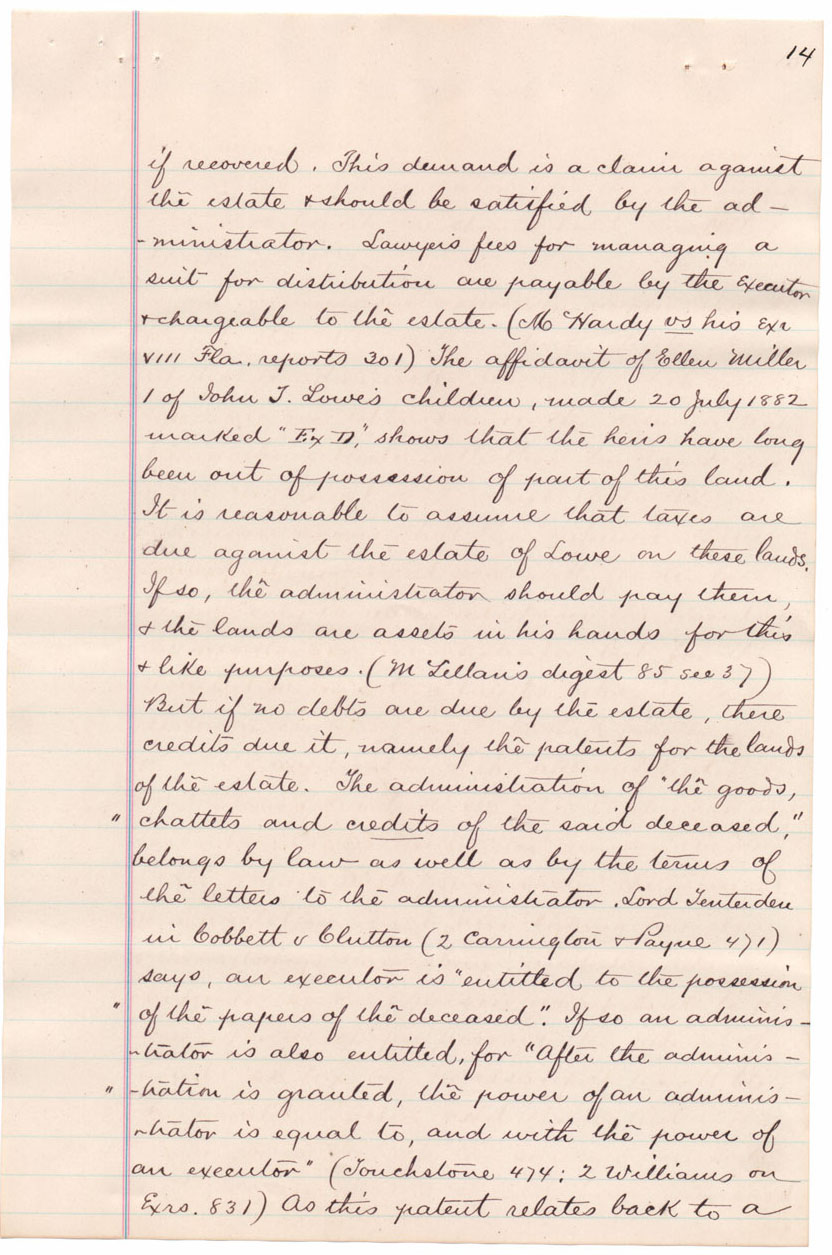 14
if recovered. This demand is a claim against
the estate & should be satisfied by the ad-
-ministrator. Lawyers fees for managing a
suit for distribution are payable by the Executor
& chargeable to the estate. (McHardy vs his Exr
VIII Fla. reports 301) The affidavit of Ellen Miller
1 of John T. Lowe's children, made 20 July 1882
marked "Ex D", shows that the heirs have long
been out of possession of part of this land.
It is reasonable to assume that taxes are
due against the estate of Lowe on these lands.
If so, the administrator should pay them,
& the lands are assets in his hands for this
& like purposes. (McLellan's digest 85 sec 37)
But if no debts are due by the estate, there
credits due it, namely the patents for the lands
of the estate. The administration of "the goods,
" chattels and credits of the said deceased,"
belongs by law as well as by the terms of
the letters to the administrator. Lord Tenterden
in Cobbett v Clutton (2 Carrington & Payne 471)
says, an executor is "entitled to the possession
" of the papers of the deceased". If so an adminis-
-trator is also entitled, for "After the adminis-
" -tration is granted, the power of an adminis-
-trator is equal to, and with the power of
an executor" (Touchstone 474; 2 Williams on
Exrs. 831) As this patent relates back to a